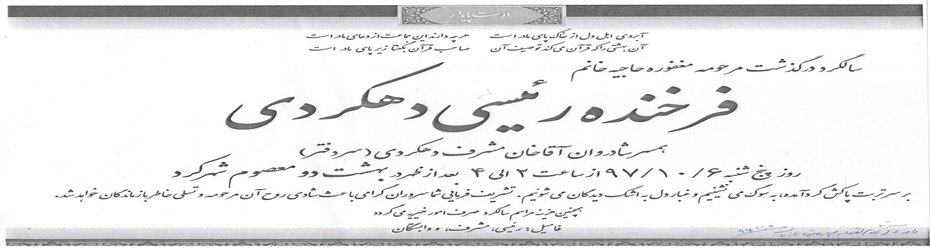 اوست پایدار
آبروی اهل دل از خاک پای مادر است هرچه دارند این جماعت از دعای مادر است
آن بهشتی را که قرآن می کند توصیف آن صاحب قرآن بگفتا زیر پای مادر است
سالگرد درگذشت مرحومه مغفوره حاجیه خانم
فرخنده رئیسی دهکردی
همسر شادروان آقاخان مشرف دهکردی (سردفتر)
روز پنج شنبه ۹۷/۱۰/۶ از ساعت ۲ الی ۴ بعد از ظهر در بهشت دو معصوم شهرکرد
بر سر تربت پاکش گرد آمده، به سوگ می نشینیم و غبار دل به اشک دیدگان می شوییم. تشریف فرمایی شما سروران گرامی باعث شادی روح آن مرحومه و تسلی خاطر بازماندگان خواهد شد.
همچنین هزینه مراسم سالگرد صرف امور خیریه می گردد
فامیل: رئیسی، مشرف، و وابستگان